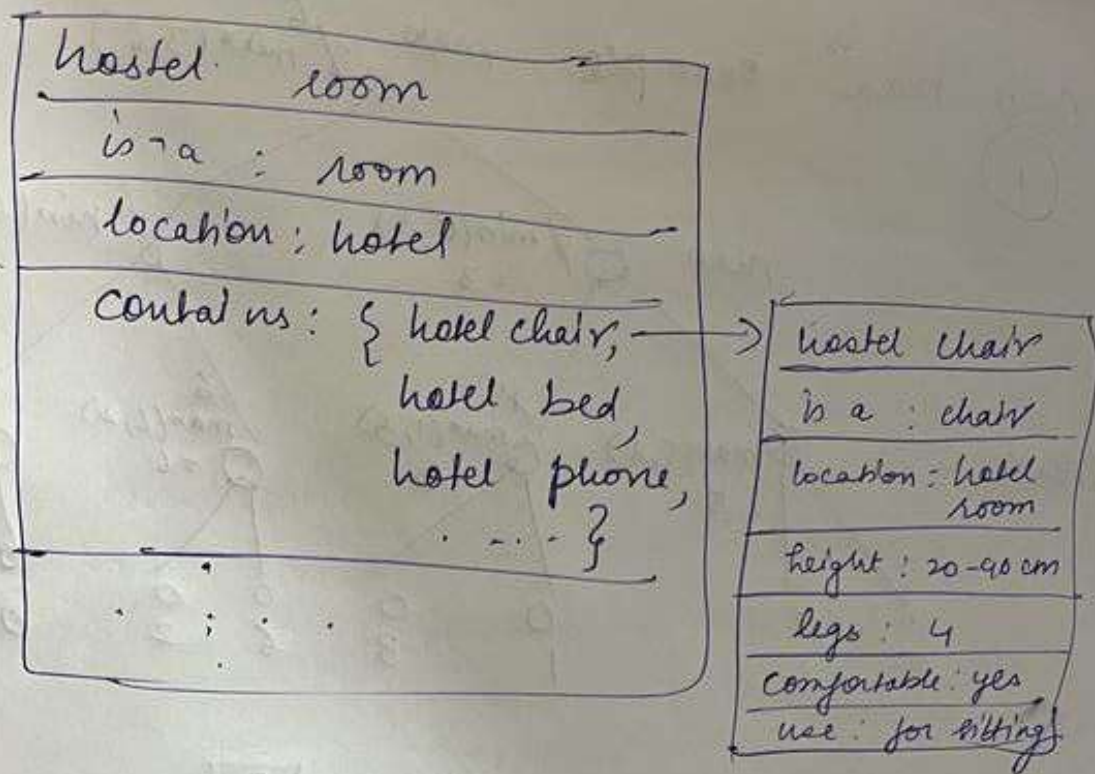 hostel room
is-a : room
location : hotel
contains : { hotel chair,
hotel bed,
hotel phone,
. - - . }
hostel chair
is a : chair
location : hotel
room
height : 20-90 cm
legs : 4
comfortable : yes
use : for sitting